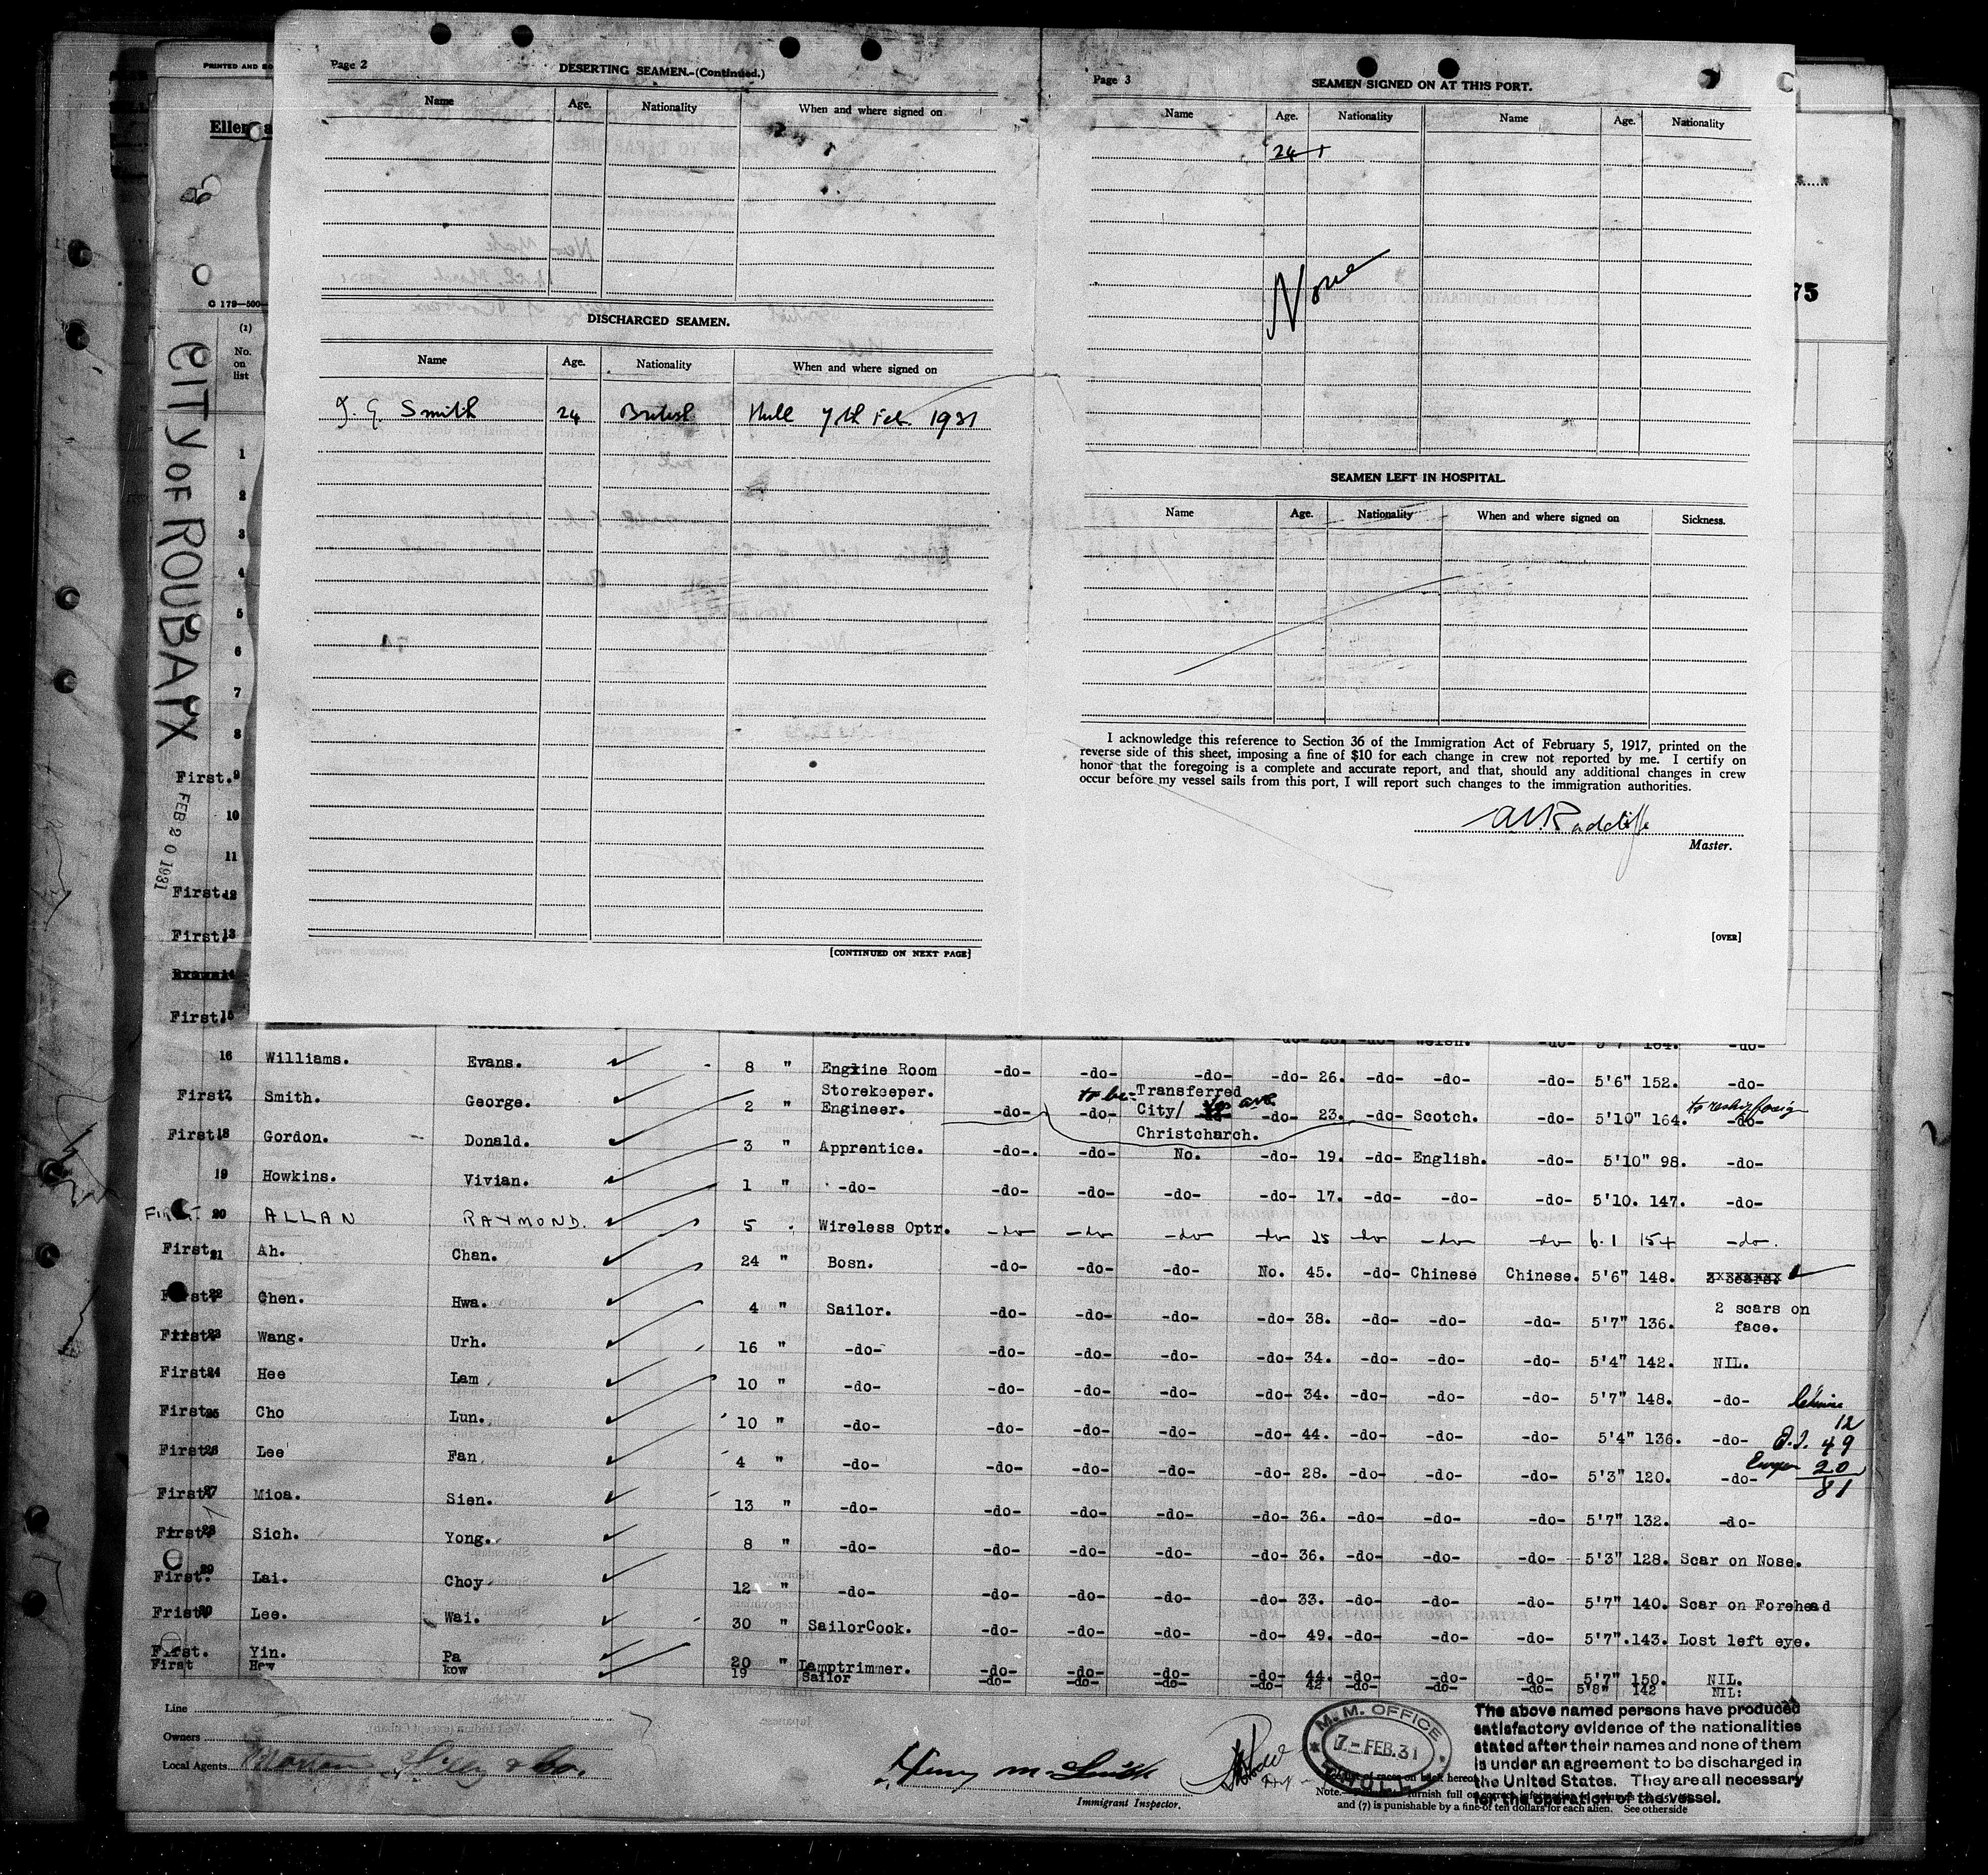 PRINTED AND
Page 2
DESERTING SEAMEN.-(Continued.)
Name Age. Nationality When and where signed on
DISCHARGED SEAMEN.
Name Age. Nationality When and where signed on
J. G. Smith 24 British Hull 7th Feb. 1931
[CONTINUED ON NEXT PAGE]
Page 3
SEAMEN SIGNED ON AT THIS PORT.
Name Age. Nationality Name Age. Nationality
24
None
SEAMEN LEFT IN HOSPITAL.
Name Age. Nationality When and where signed on Sickness.
I acknowledge this reference to Section 36 of the Immigration Act of February 5, 1917, printed on the
reverse side of this sheet, imposing a fine of $10 for each change in crew not reported by me. I certify on
honor that the foregoing is a complete and accurate report, and that, should any additional changes in crew
occur before my vessel sails from this port, I will report such changes to the immigration authorities.
Radcliffe
Master.
[OVER]
75
Eller
(1)
No.
on
list
CITY OF ROUBAIX
FEB 20 1931
1
2
3
4
5
6
7
8
First. 9
10
11
First. 12
First. 13
14
First. 15
16 Williams. Evans. 8 " Engine Room -do- -do- -do- -do- 26. -do- -do- -do- 5'6" 152. -do-
Storekeeper.
First. 17 Smith. George. 2 " Engineer. -do- to be -do- Transferred City/ Christcharch. -do- 23. -do- Scotch. -do- 5'10" 164. to reship foreign -do-
First 18 Gordon. Donald. 3 " Apprentice. -do-. -do- No. -do- 19. -do- English. -do- 5'10" 98. -do-
19 Howkins. Vivian. 1 " -do- -do- -do- -do- -do- 17. -do- -do- -do- 5'10. 147. -do-
FIRST 20 ALLAN RAYMOND. 5 Wireless Optr. -do -do -do -do 25 -do -do -do 6.1 154 -do.
First. 21 Ah. Chan. 24 " Bosn. -do- -do- -do- No. 45. -do- Chinese Chinese. 5'6" 148.
First. 22 Chen. Hwa. 4 " Sailor. -do- -do- -do- -do- 38. -do- -do- -do- 5'7" 136. 2 scars on
face.
First. 23 Wang. Urh. 16 " -do- -do- -do- -do- -do- 34. -do- -do- -do- 5'4" 142. NIL.
First 24 Hee Lam 10 " -do- -do- -do- -do- -do- 34. -do- -do- -do- 5'7" 148. -do-
First. 25 Cho Lun. 10 " -do- -do- -do- -do- -do- 44. -do- -do- -do- 5'4" 136. -do-
First 26 Lee Fan. 4 " -do- -do- -do- -do- -do- 28. -do- -do- -do- 5'3" 120. -do-
First. 27 Mioa. Sien. 13 " -do- -do- -do- -do- -do- 36. -do- -do- -do- 5'7" 132. -do-
First. 28 Sich. Yong. 8 " -do- -do- -do- -do- -do- 36. -do- -do- -do- 5'3" 128. Scar on Nose.
First. 29 Lai. Choy 12 " -do- -do- -do- -do- -do- 33. -do- -do- -do- 5'7" 140. Scar on Forehead
Frist. 30 Lee. Wai. 30 " SailorCook. -do- -do- -do- -do- 49. -do- -do- -do- 5'7". 143. Lost left eye.
First. Yin. Pa 20 " Lamptrimmer. -do- -do- -do- -do- 44. -do- -do- -do- 5'7" 150. NIL.
First Hew kow 19 Sailor -do- -do- -do- -do- 42 -do- -do- -do- 5'8" 142 NIL:
Chinese 12
49
20
81
Line
Owners
Local Agents
Immigrant Inspector.
M. M. OFFICE
7-FEB.31
HULL
The above named persons have produced
satisfactory evidence of the nationalities
stated after their names and none of them
is under an agreement to be discharged in
the United States. They are all necessary
for the operation of the vessel.
and (7) is punishable by a fine of ten dollars for each alien. See other side